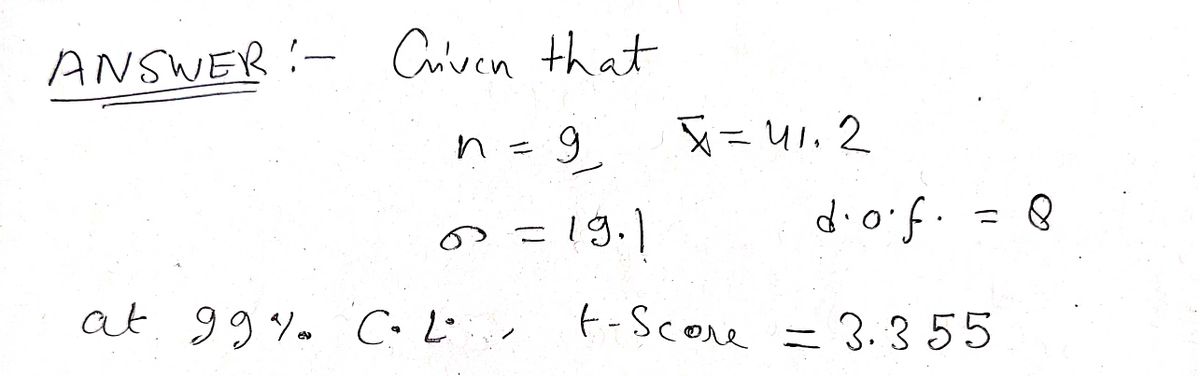 ANSWER :- Given that
n = 9 x̄ = 41.2
σ = 19.1 d.o.f. = 8
at 99% C.L., t-Score = 3.355